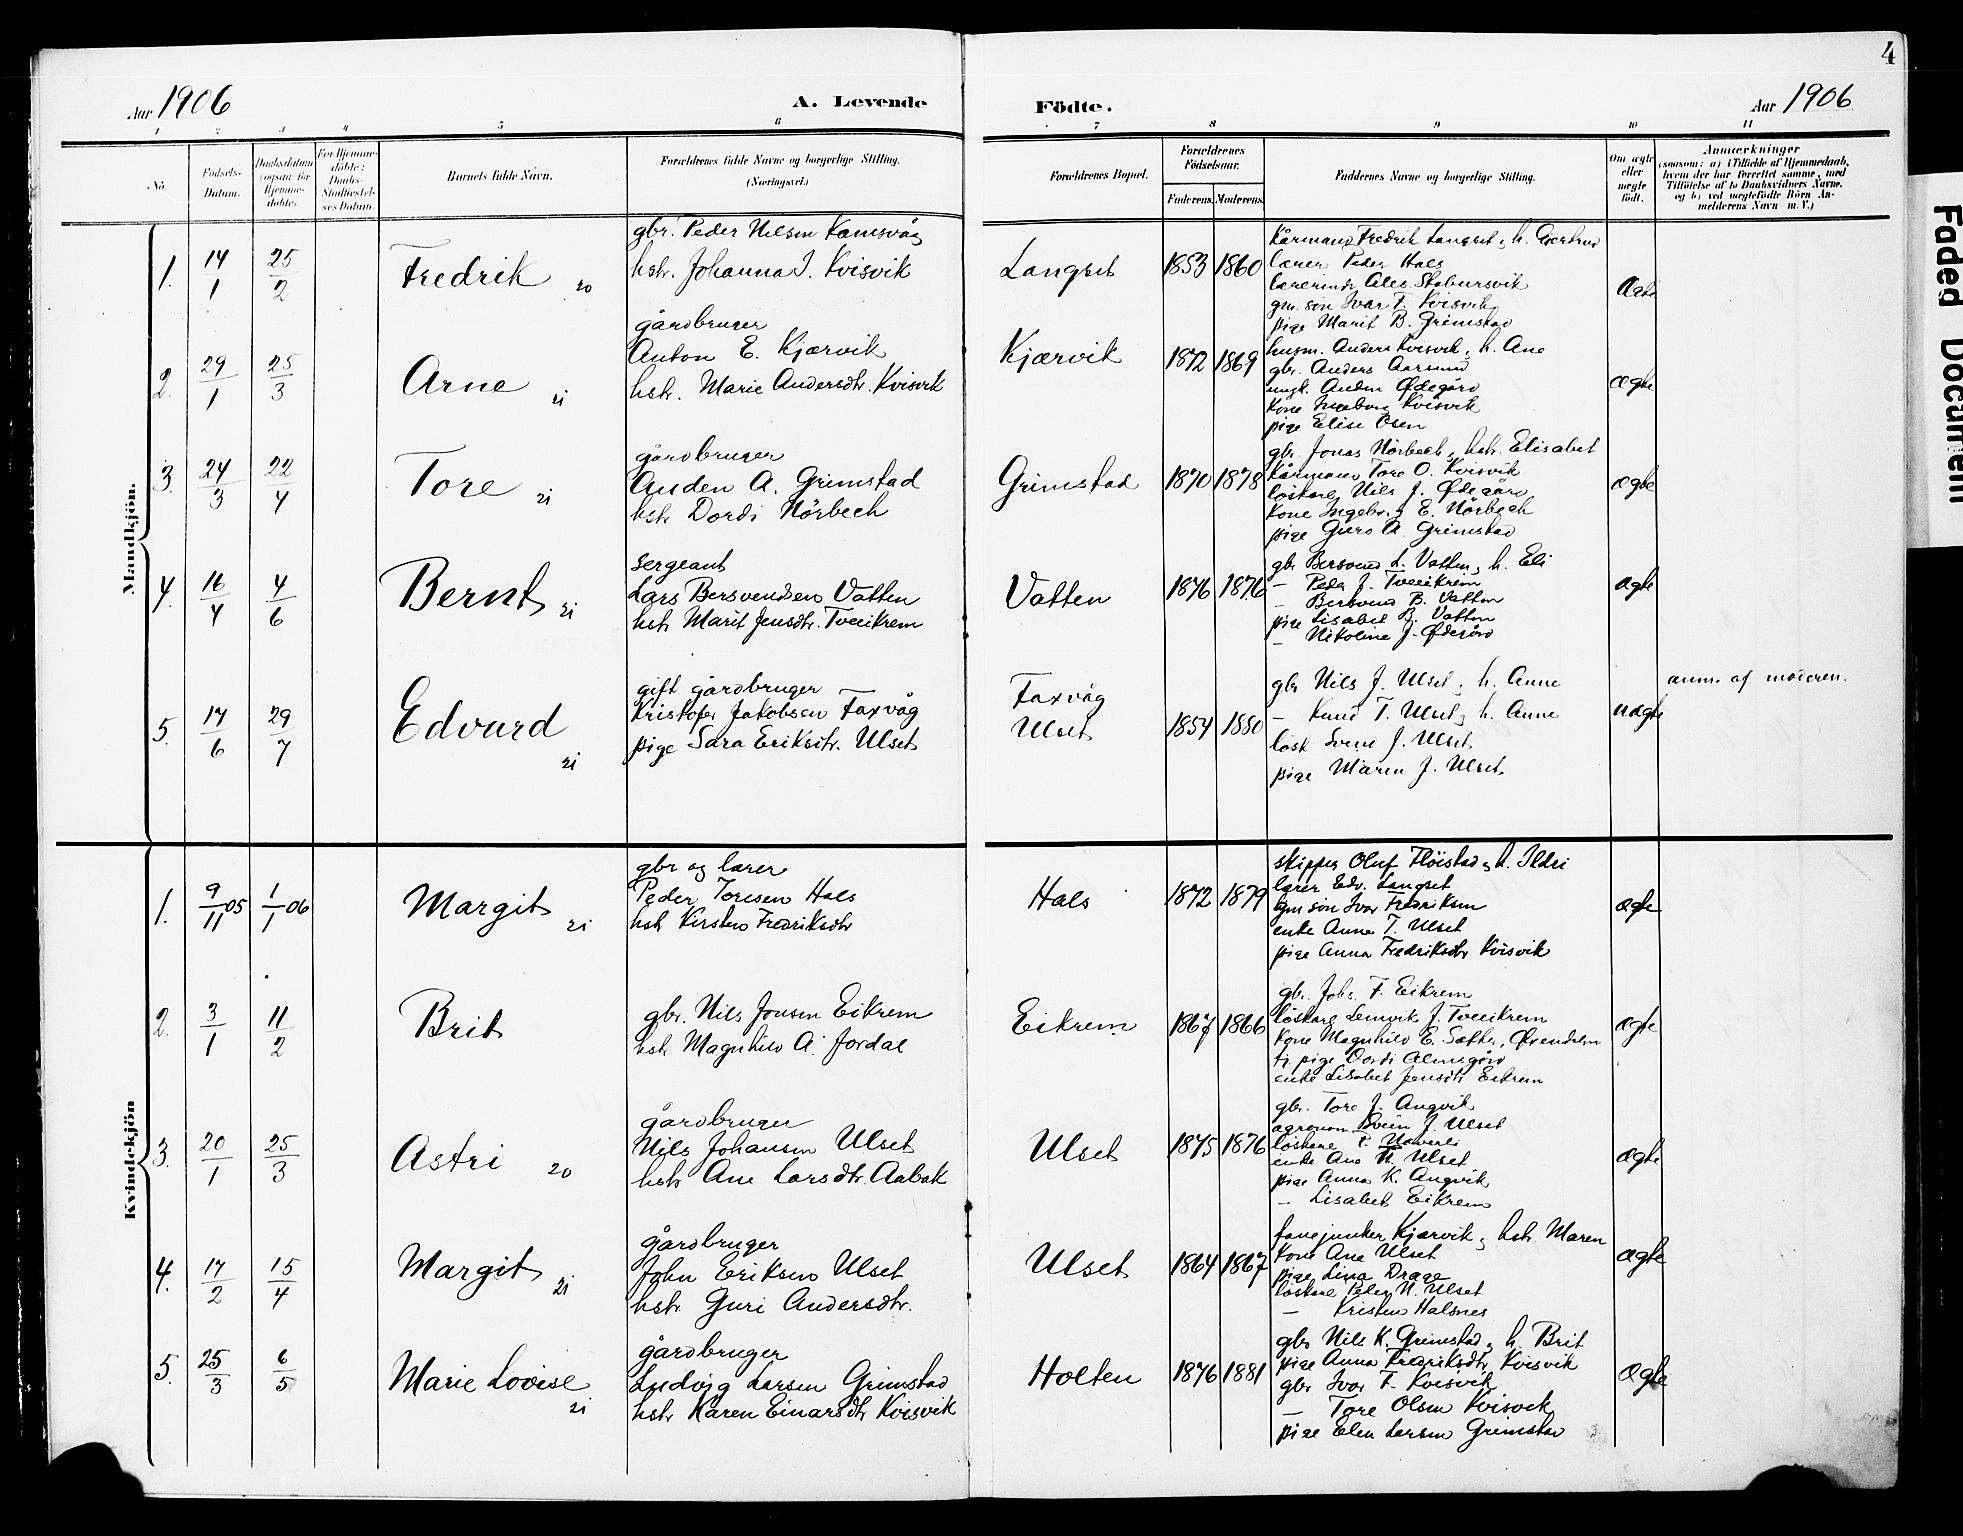 4
Aar 1906
A. Levende
Födte.
Aar 1906
1 2 3 4 5 6 7 8 9 10 11
No.
Födsels-Datum.
Daabsdatum (ogsaa for Hjemme-döbte).
For Hjemme-döbte: Daabs-Stadfæstel-ses Datum.
Barnets fulde Navn.
Forældrenes fulde Navne og borgerlige Stilling.
(Næringsvei.)
Forældrenes Bopæl.
Forældrenes Födselsaar.
Faderens. Moderens.
Faddernes Navne og borgerlige Stilling.
Om ægte eller uægte født.
Anmærkninger
(saasom: a) i Tilfælde af Hjemmedaab,
hvem der har forrettet samme, med
Tilföielse af to Daabsvidners Navne,
og b) ved uægtefödte Börn An-
melderens Navn m. V.)
Mandkjön.
1. 14/1 25/2 Fredrik 20
gbr. Peder Nilsen Kamsvåg
hstr. Johanna I. Kvisvik
Langset 1853 1860
Kårmand Fredrik Langset, h. Gjertrud
lærer Peder Hals
lærerinde Ales Stabursvik
gm. søn Ivar F. Kvisvik
pige Marit B. Grimstad
ægte
2. 29/1 25/3 Arne ri
gårdbruger
Anton E. Kjærvik
hstr. Marie Andersdtr. Kvisvik
Kjærvik 1872 1869
husm. Anders Kvisvik, h. Ane
gbr. Anders Aarsund
ungk. Anders Ødegård
Kone Ingeborg Kvisvik
pige Elise Osen
ægte
3. 24/3 22/4 Tore ri
gårdbruger
Auden A. Grimstad
hstr Dordi Nörbech
Grimstad 1870 1878
gbr. Jonas Nörbech, hstr. Elisabet
Kårmand Tore O. Kvisvik
løskarl Nils J. Ødegård
Kone Ingebr. E. Nörbech
pige Guro A. Grimstad
ægte
4. 16/4 4/6 Bernt ri
sergeant
Lars Bersvendsen Vatten
hstr Marit Jensdtr. Tveeikrem
Vatten 1876 1876
gbr Bersvend L. Vatten, h. Eli
— Peder J. Tveeikrem
— Bersvend B. Vatten
pige Lisabet B. Vatten
— Nikoline J. Ødegård
ægte
5. 17/6 29/7 Edvard ri
gift gårdbruger
Kristofer Jakobsen Faxvåg
pige Sara Eriksdtr. Ulset
Faxvåg
Ulset 1854 1880
gbr Nils J. Ulset, h. Anne
— Knud T. Ulset, h. Anne
løsk Svend J. Ulset
pige Maren J. Ulset
uægte
anm. af moderen.
Kvindekjön
1. 9/11 05 1/1 06 Margit ri
gbr og lærer
Peder Toresen Hals
hstr Kirsten Fredriksdtr
Hals 1872 1879
skipper Oluf Fløistad, h. Ildri
lærer Edv. Langset
gm søn Ivar Fredriksen
enke Anne T. Ulset
pige Anna Fredriksdtr Kvisvik
ægte
2. 3/1 11/2 Brit
gbr. Nils Jonsen Eikrem
hstr Magnhild A. Jordal
Eikrem 1867 1866
gbr. Johs. F. Eikrem
løskarl Lemvik J. Tveeikrem
Kone Magnhild E. Sæther, Øxendalen
tj. pige Dordi Almsgård
enke Lisabet Jensdtr Eikrem
ægte
3. 20/1 25/3 Astri 20
gårdbruger
Nils Johansen Ulset
hstr Ane Larsdtr. Aabak
Ulset 1875 1876
gbr. Tore J. Angvik
agronom Svein J. Ulset
løskarl
enke Ane N. Ulset
pige Anna K. Angvik
— Lisabet Eikrem
ægte
4. 17/2 15/4 Margit ri
gårdbruger
John Eriksen Ulset
hstr. Guri Andersdtr.
Ulset 1864 1867
fanejunker Kjærvik, hstr Maren
Kone Ane Ulset
pige Lina Drage
løskarl Peder N. Ulset
— Kristen Halsnes
ægte
5. 25/3 6/5 Marie Lovise ri
gårdbruger
Ludvig Larsen Grimstad
hstr Karen Einarsdtr Kvisvik
Holten 1876 1881
gbr Nils K. Grimstad, h. Brit
pige Anna Fredriksdtr Kvisvik
gbr Ivar F. Kvisvik
— Tore Olsen Kvisvik
pige Elen Larsen Grimstad
ægte
Faded Document